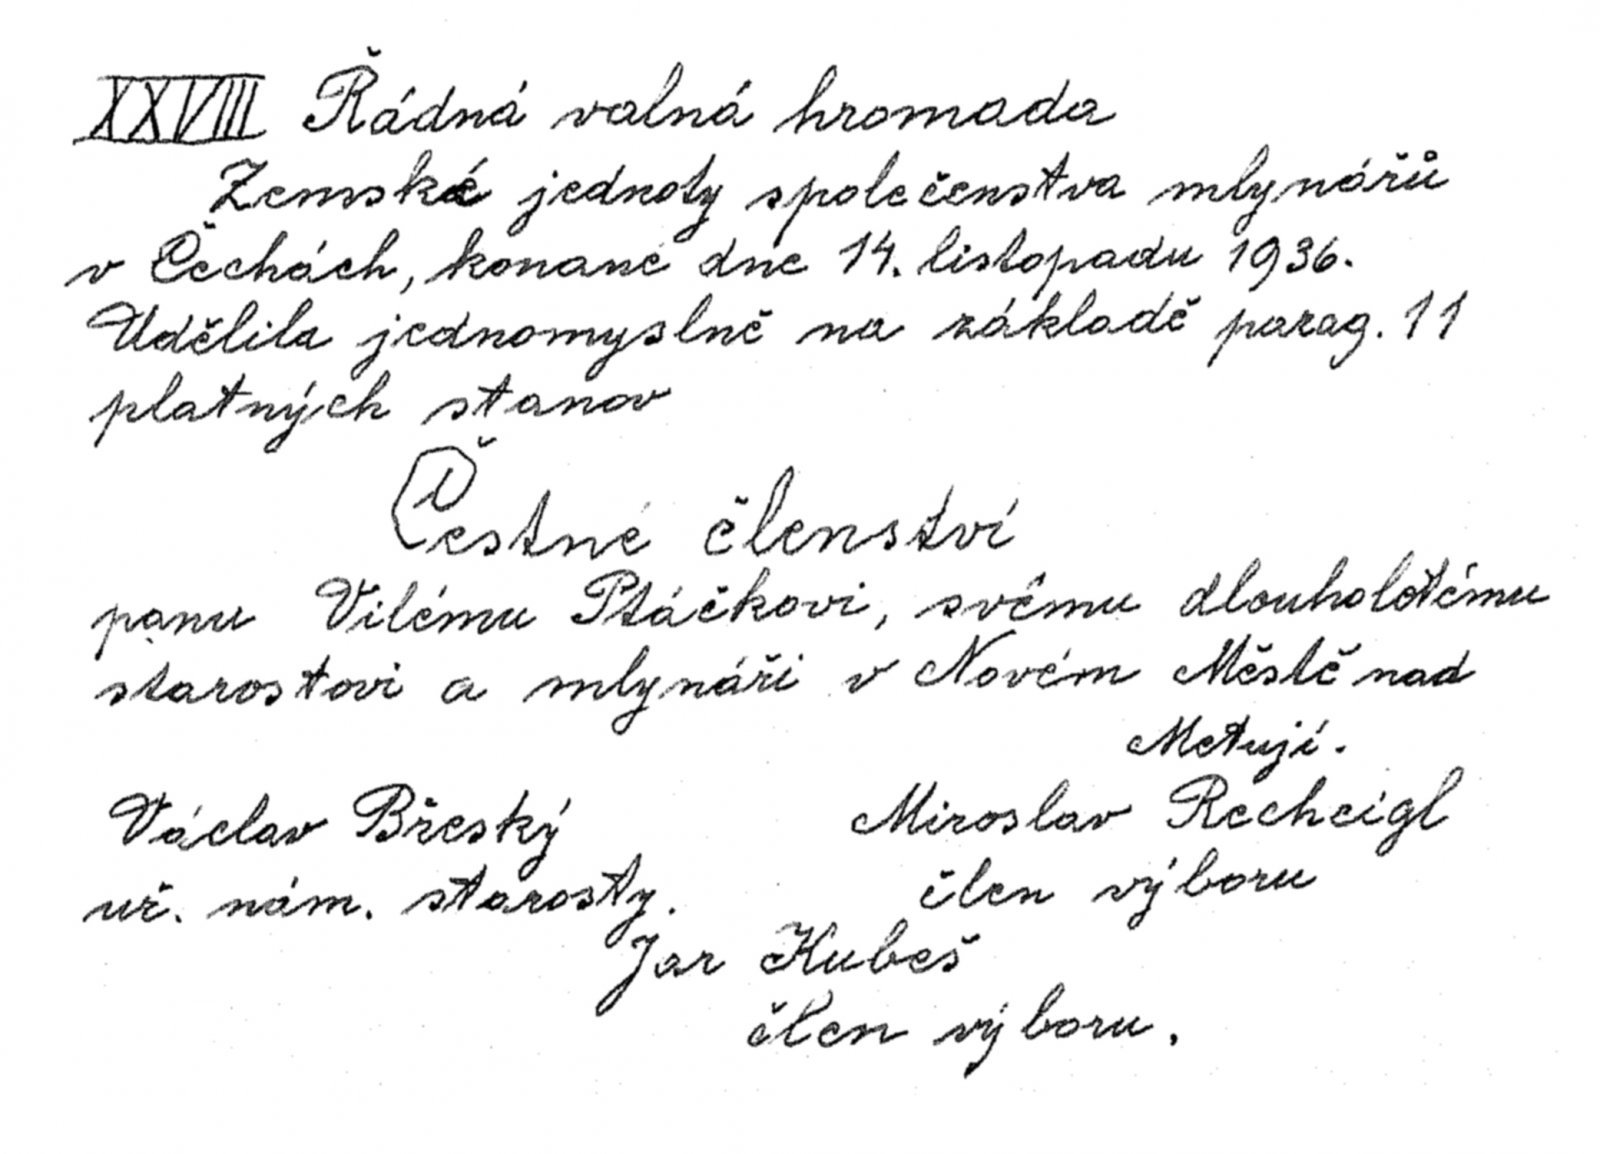 XXVIII Řádná valná hromada
Zemské jednoty společenstva mlynářů
v Čechách, konané dne 14. listopadu 1936.
Udělila jednomyslně na základě parag. 11
platných stanov
Čestné členství
panu Vilému Ptáčkovi, svému dlouholetému
starostovi a mlynáři v Novém Městě nad
Metují.
Václav Břeský Miroslav Rechcigl
uř. nám. starosty. člen výboru
Jar Kubeš
člen výboru.